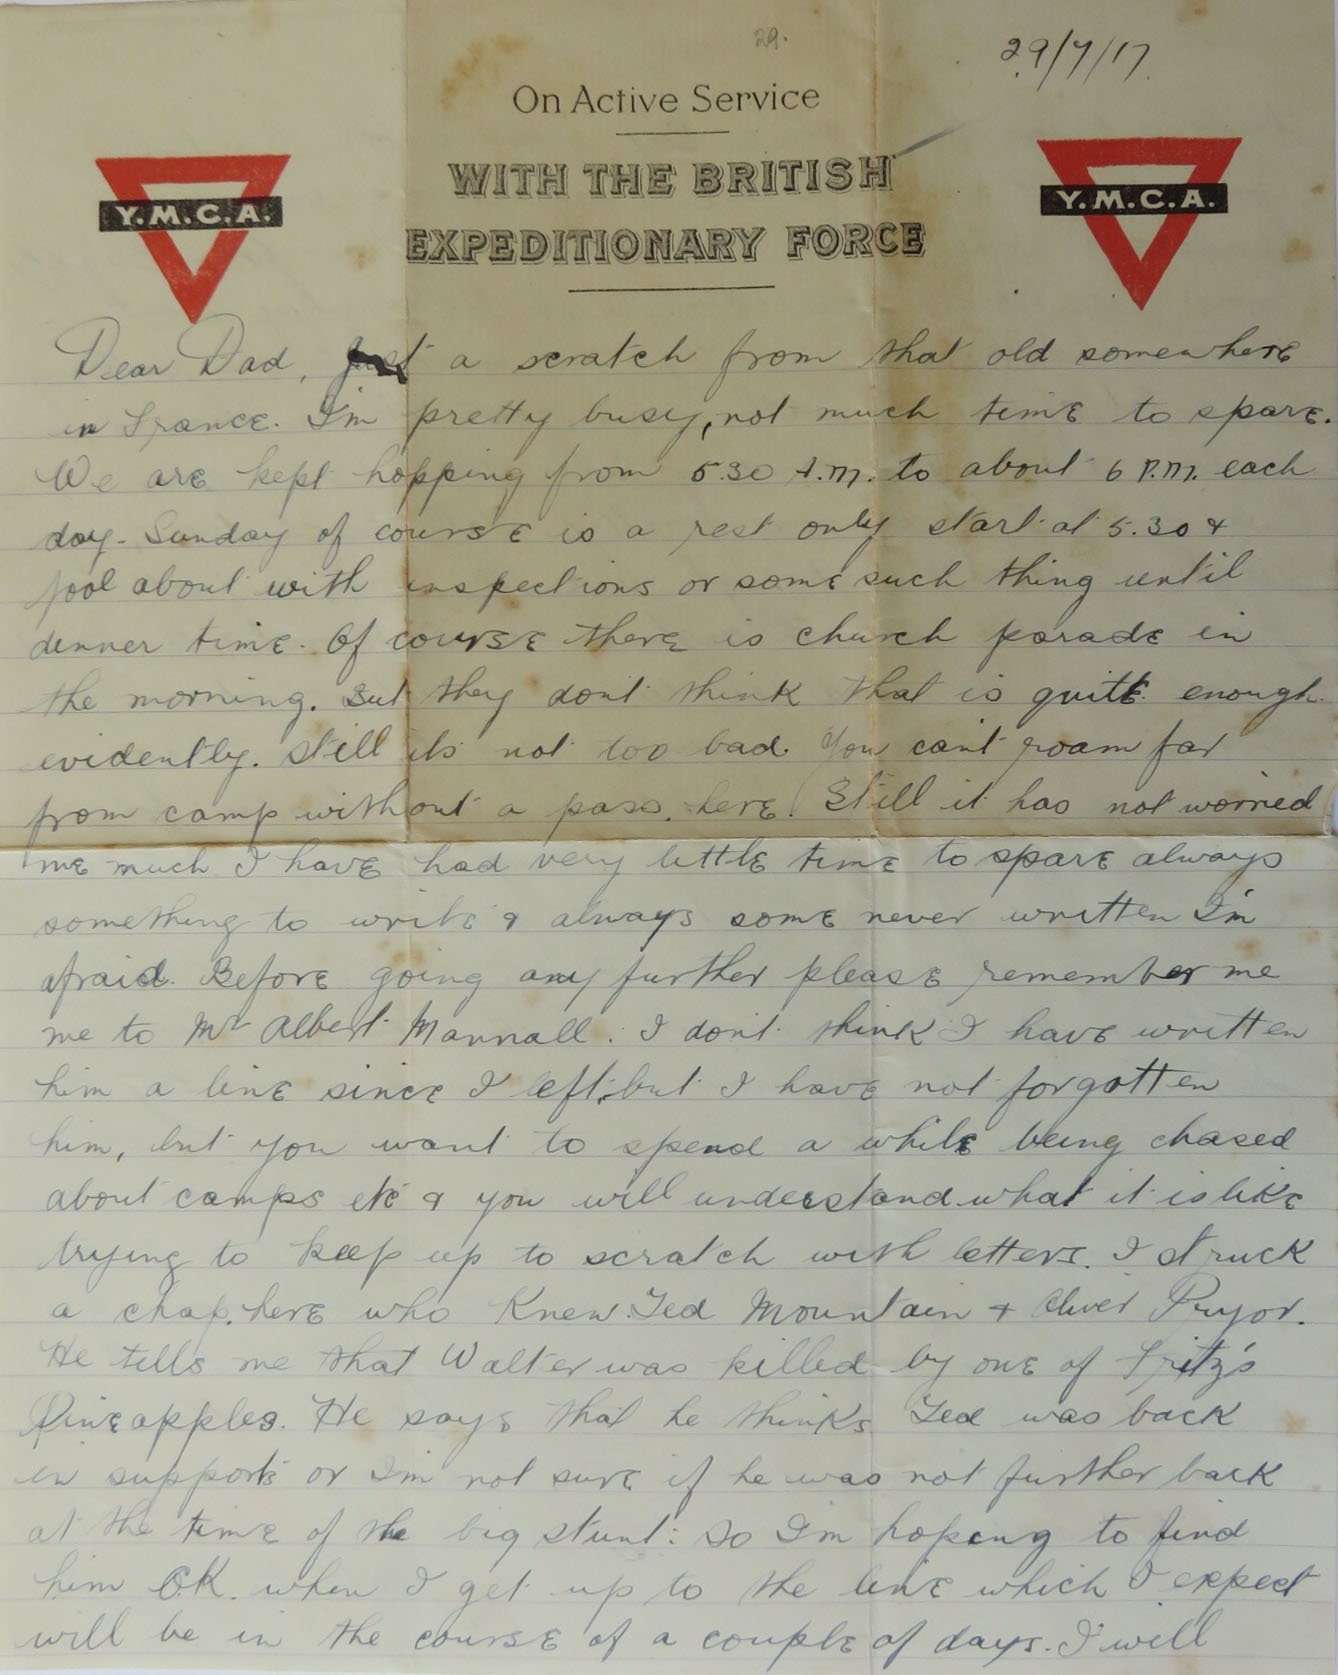 29.
29/7/17
On Active Service
WITH THE BRITISH
EXPEDITIONARY FORCE
Y.M.C.A.
Y.M.C.A.
Dear Dad, Just a scratch from that old somewhere
in France. I'm pretty busy, not much time to spare.
We are kept hopping from 5.30 A.M. to about 6 P.M. each
day. Sunday of course is a rest only start at 5.30 &
fool about with inspections or some such thing until
dinner time. Of course there is church parade in
the morning. But they don't think that is quite enough
evidently. Still its not too bad. You can't roam far
from camp without a pass. here. Still it has not worried
me much I have had very little time to spare always
something to write & always some never written I'm
afraid. Before going any further please remember me
me to Mr Albert Mannall. I don't think I have written
him a line since I left, but I have not forgotten
him, but you want to spend a while being chased
about camps etc & you will understand what it is like
trying to keep up to scratch with letters. I struck
a chap. here who knew Ted Mountain & Oliver Pryor.
He tells me that Walter was killed by one of Fritz's
Pineapples. He says that he thinks Ted was back
in supports or I'm not sure if he was not further back
at the time of the big stunt: So I'm hoping to find
him O.K. when I get up to the line which I expect
will be in the course of a couple of days. I will